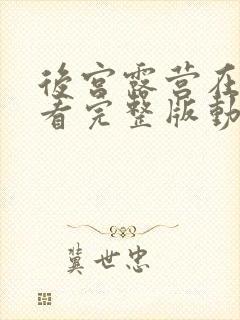 後宮露营在
看完整版動
冀世忠